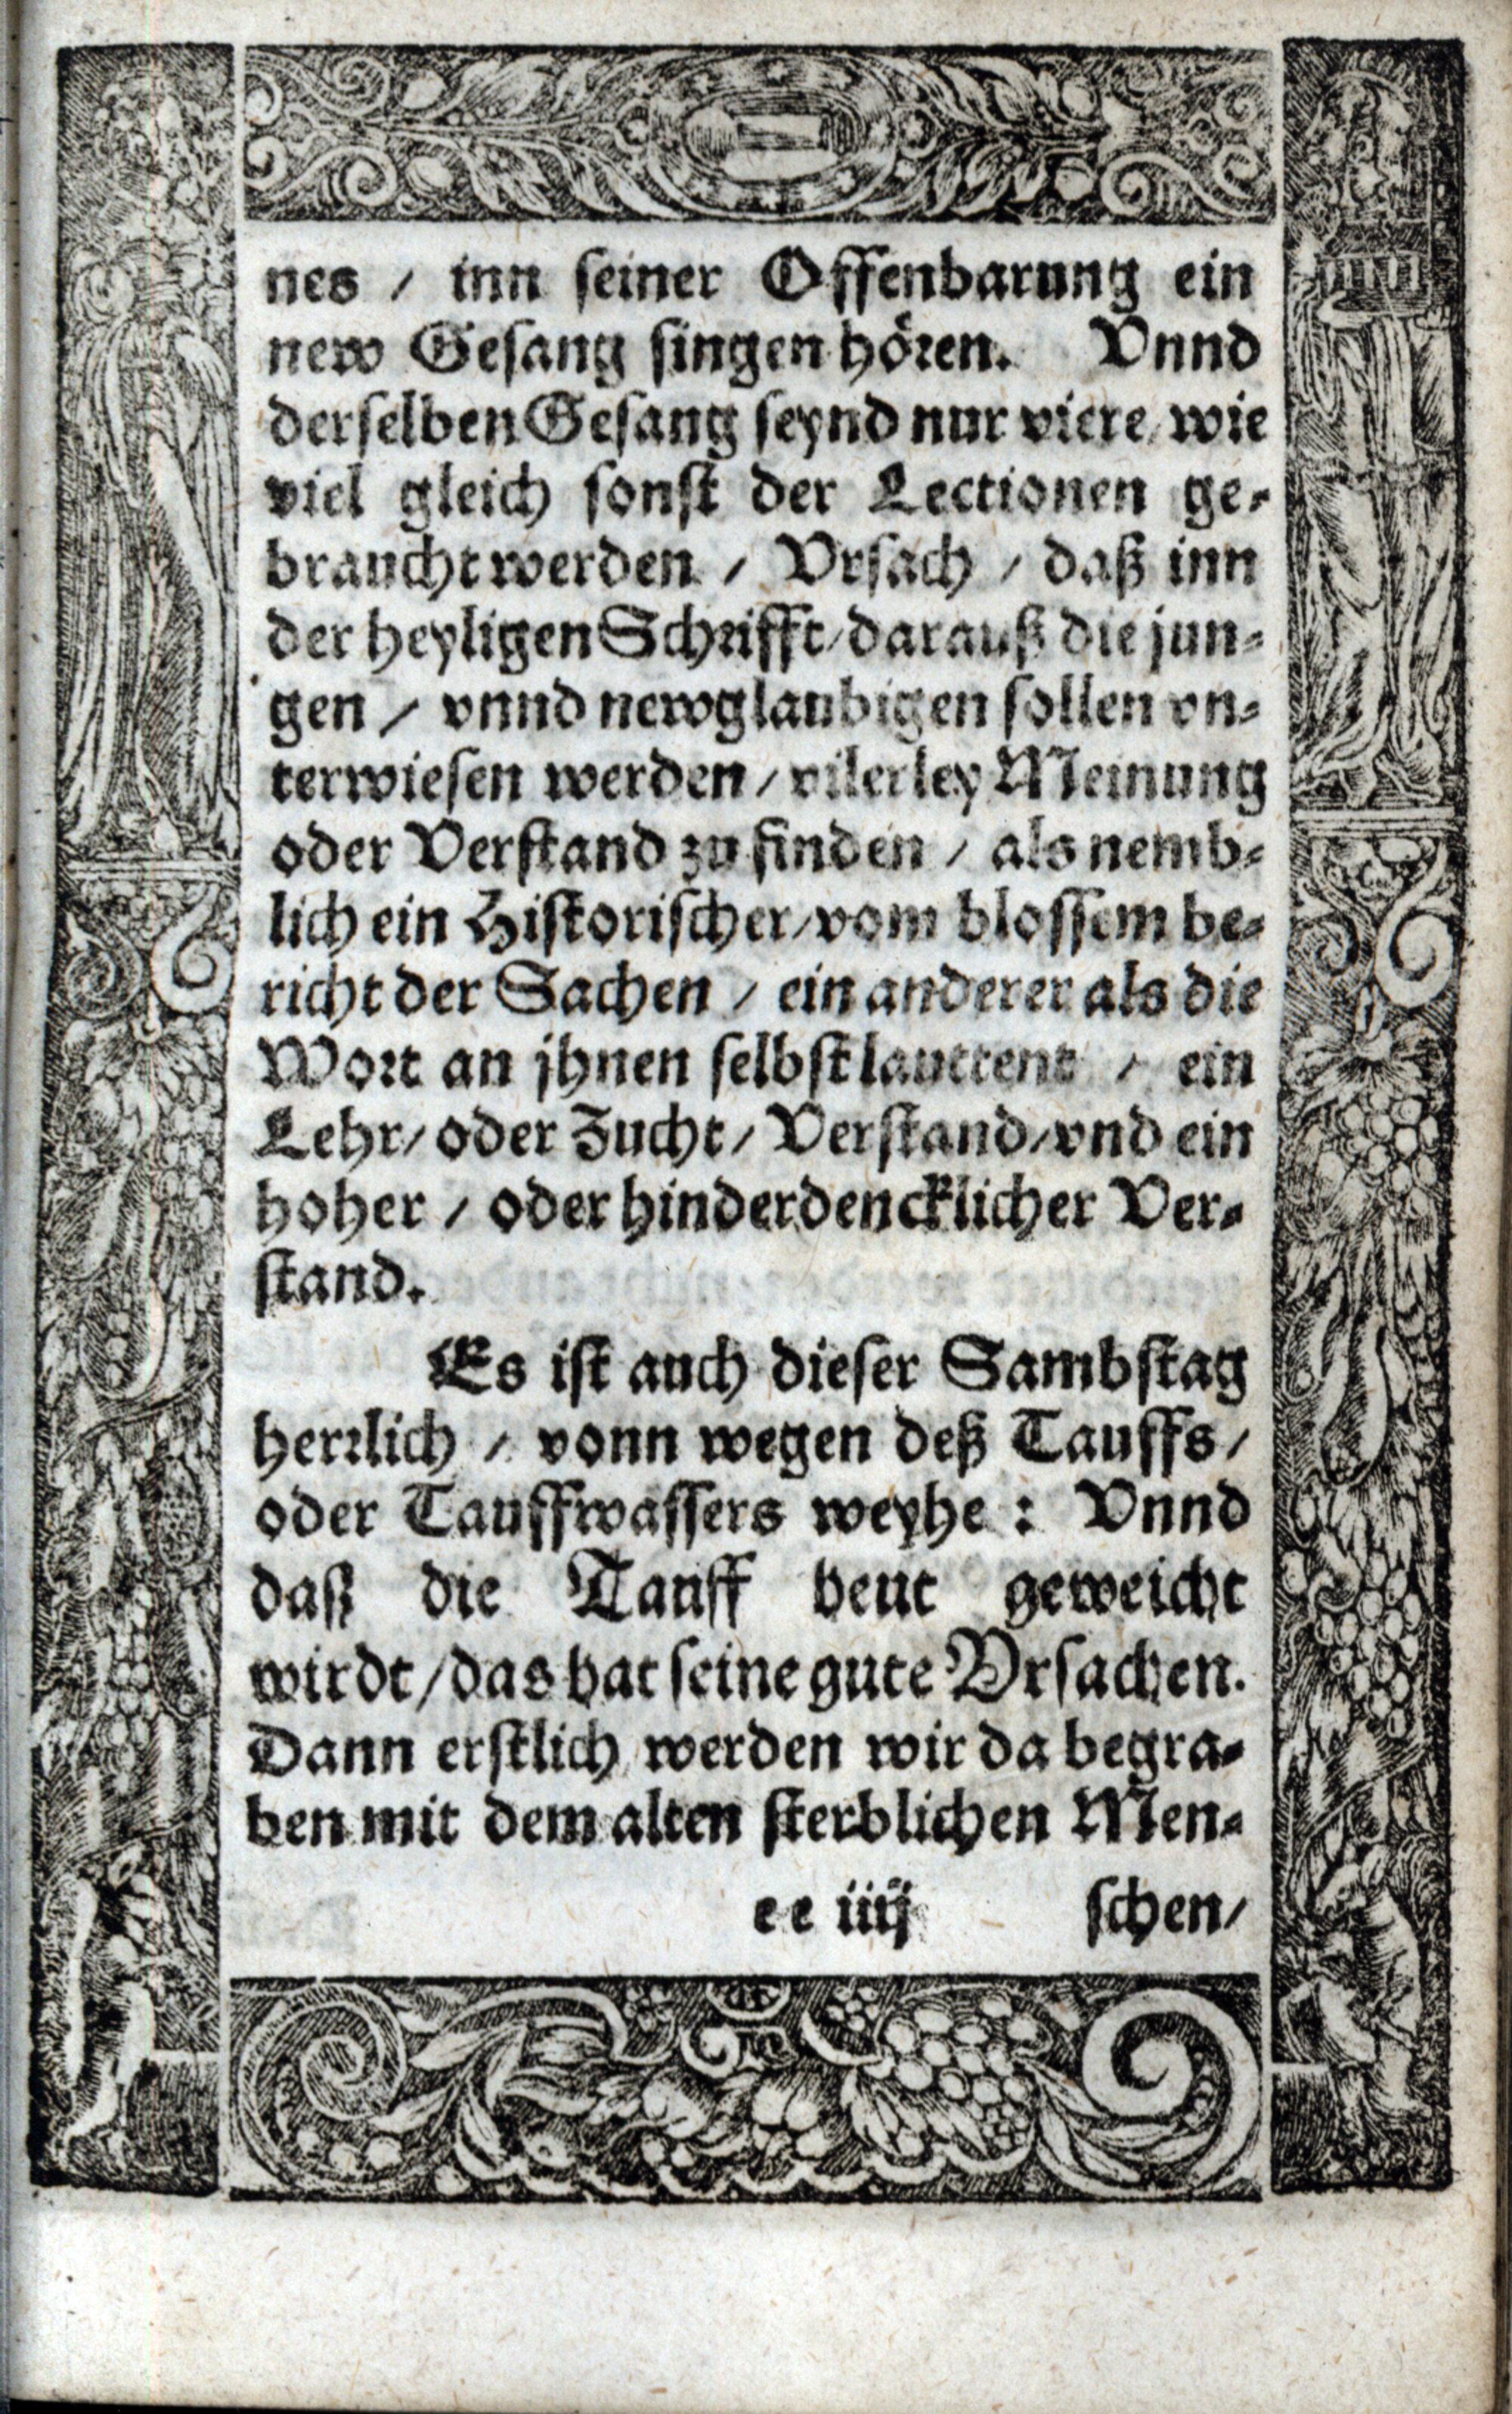 nes / inn seiner Offenbarung ein
new Gesang singen hören. Vnnd
derselben Gesang seynd nur viere / wie
viel gleich sonst der Lectionen ge-
braucht werden / Vrsach / daß inn
der heyligen Schrifft / darauß die jun-
gen / vnnd newglaubigen sollen vn-
terwiesen werden / vilerley Meinung
oder Verstand zu finden / als nemb-
lich ein Historischer / vom blossem be-
richt der Sachen / ein anderer als die
Wort an jhnen selbst lauttent / ein
Lehr / oder Zucht / Verstand / vnd ein
hoher / oder hinderdencklicher Ver-
stand.
Es ist auch dieser Sambstag
herrlich / vonn wegen deß Tauffs /
oder Tauffwassers weyhe : Vnnd
daß die Tauff heut geweicht
wirdt / das hat seine gute Vrsachen.
Dann erstlich werden wir da begra-
ben mit dem alten sterblichen Men-
ee iiij schen /